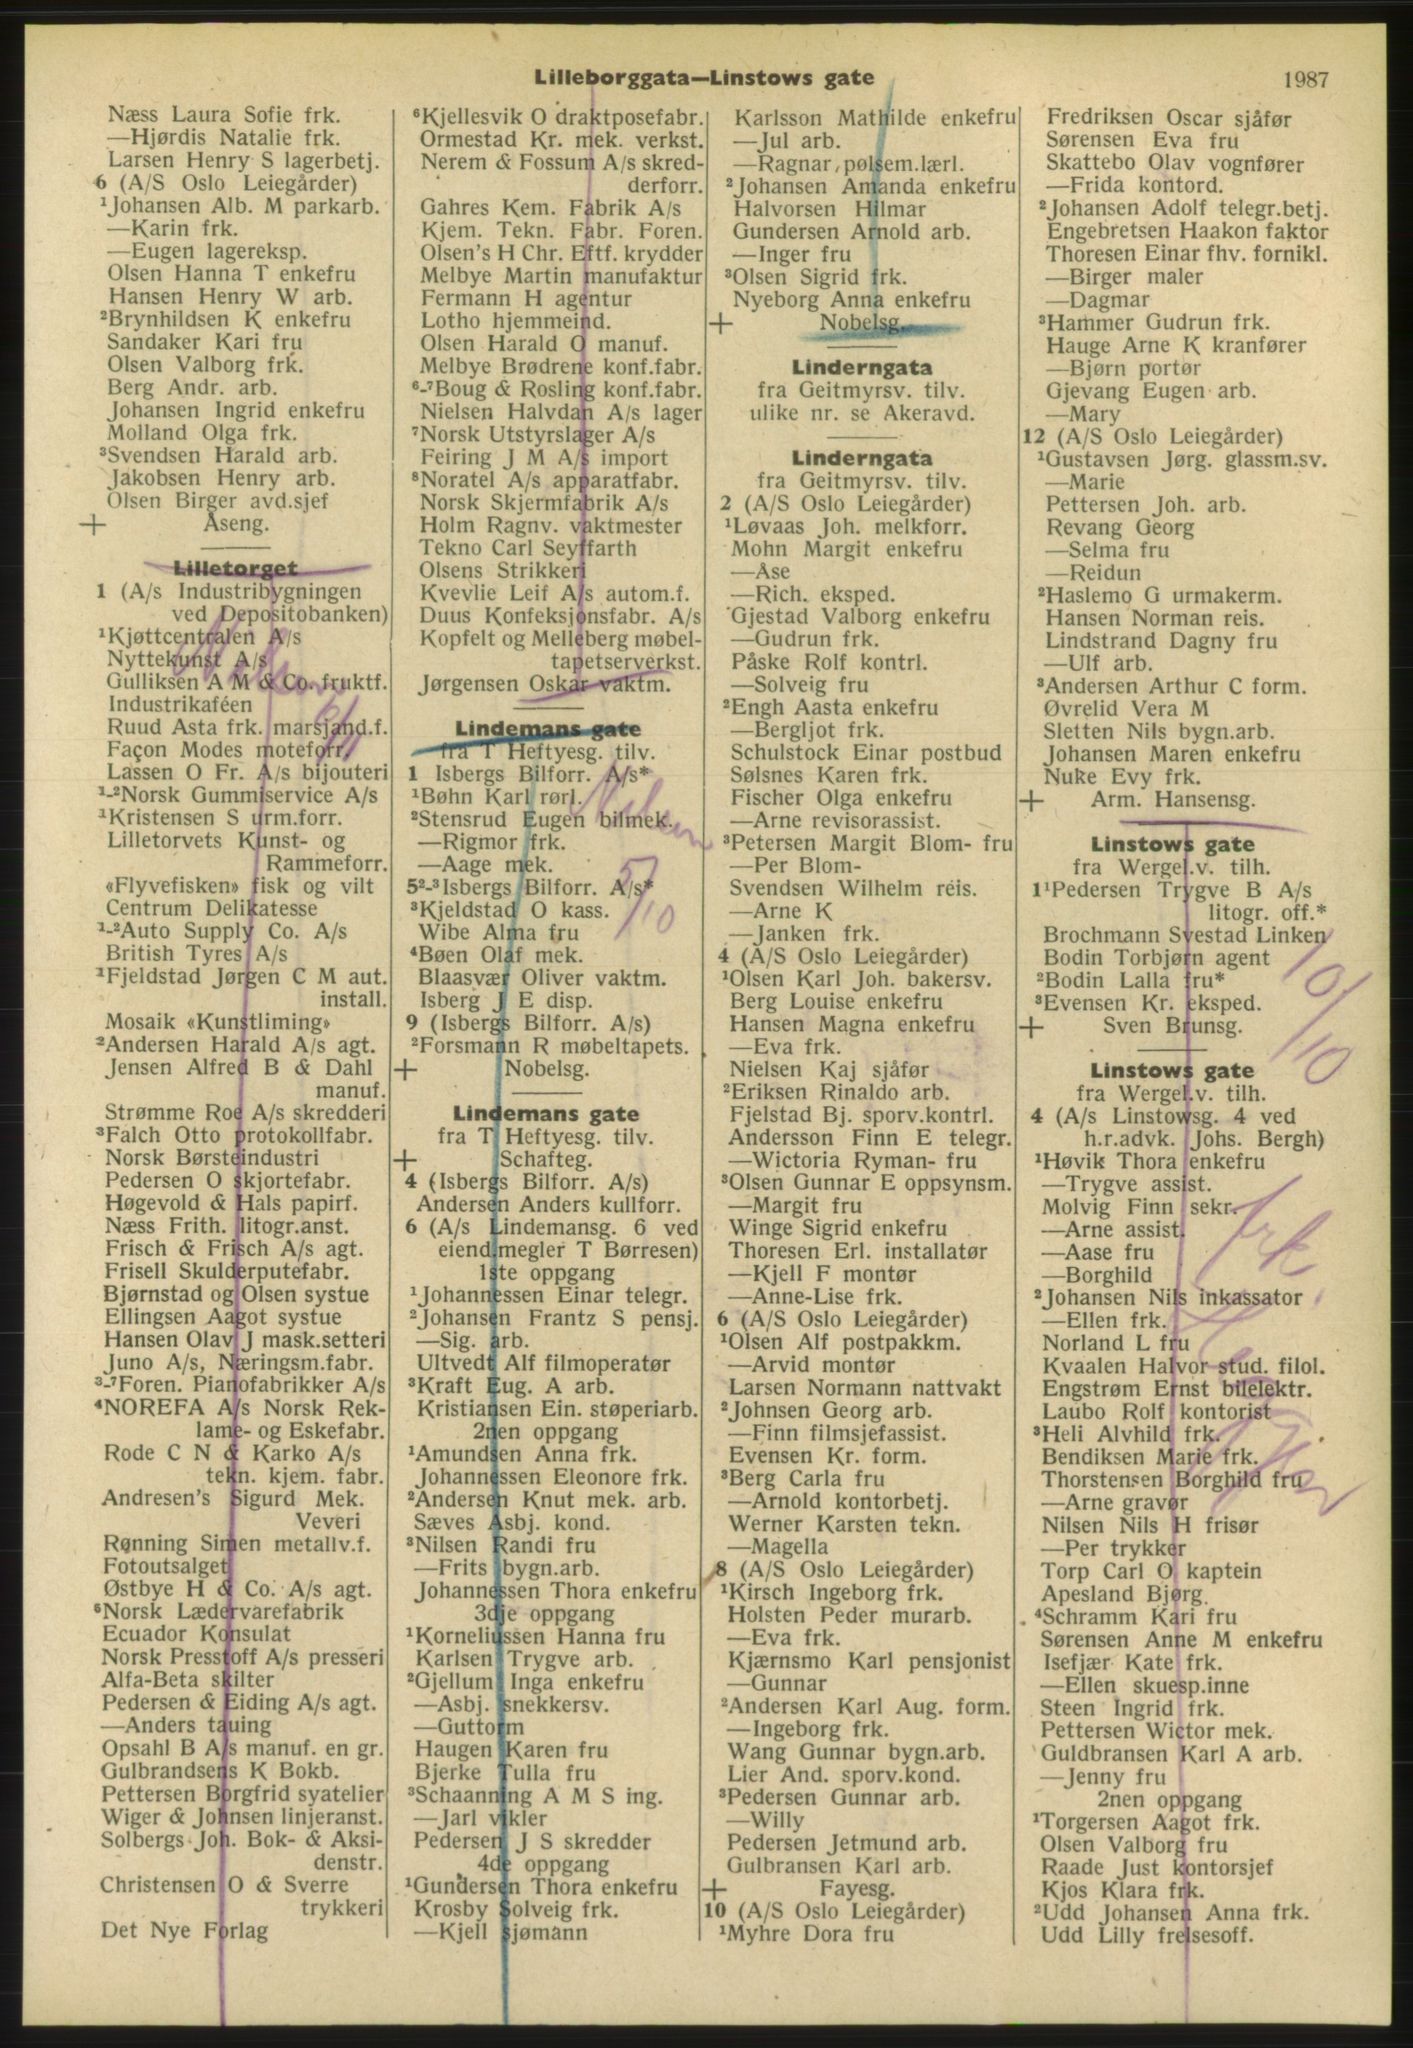 Lilleborggata—Linstows gate
1987
Næss Laura Sofie frk.
—Hjørdis Natalie frk.
Larsen Henry S lagerbetj.
6 (A/S Oslo Leiegårder)
¹Johansen Alb. M parkarb.
—Karin frk.
—Eugen lagereksp.
Olsen Hanna T enkefru
Hansen Henry W arb.
²Brynhildsen K enkefru
Sandaker Kari fru
Olsen Valborg frk.
Berg Andr. arb.
Johansen Ingrid enkefru
Molland Olga frk.
³Svendsen Harald arb.
Jakobsen Henry arb.
Olsen Birger avd.sjef
+ Åseng.
Lilletorget
1 (A/s Industribygningen
ved Depositobanken)
¹Kjøttcentralen A/s
Nyttekunst A/s
Gulliksen A M & Co. fruktf.
Industrikaféen
Ruud Asta frk. marsjand.f.
Façon Modes moteforr.
Lassen O Fr. A/s bijouteri
¹-²Norsk Gummiservice A/s
¹Kristensen S urm.forr.
Lilletorvets Kunst- og
Rammeforr.
«Flyvefisken» fisk og vilt
Centrum Delikatesse
¹-²Auto Supply Co. A/s
British Tyres A/s
¹Fjeldstad Jørgen C M aut.
install.
Mosaik «Kunstliming»
²Andersen Harald A/s agt.
Jensen Alfred B & Dahl
manuf.
Strømme Roe A/s skredderi
³Falch Otto protokollfabr.
Norsk Børsteindustri
Pedersen O skjortefabr.
Høgevold & Hals papirf.
Næss Frith. litogr.anst.
Frisch & Frisch A/s agt.
Frisell Skulderputefabr.
Bjørnstad og Olsen systue
Ellingsen Aagot systue
Hansen Olav J mask.setteri
Juno A/s, Næringsm.fabr.
³-⁷Foren. Pianofabrikker A/s
⁴NOREFA A/s Norsk Rek-
lame- og Eskefabr.
Rode C N & Karko A/s
tekn. kjem. fabr.
Andresen's Sigurd Mek.
Veveri
Rønning Simen metallv.f.
Fotoutsalget
Østbye H & Co. A/s agt.
⁶Norsk Lædervarefabrik
Ecuador Konsulat
Norsk Presstoff A/s presseri
Alfa-Beta skilter
Pedersen & Eiding A/s agt.
—Anders tauing
Opsahl B A/s manuf. en gr.
Gulbrandsens K Bokb.
Pettersen Borgfrid syatelier
Wiger & Johnsen linjeranst.
Solbergs Joh. Bok- & Aksi-
denstr.
Christensen O & Sverre
trykkeri
Det Nye Forlag
⁶Kjellesvik O draktposefabr.
Ormestad Kr. mek. verkst.
Nerem & Fossum A/s skred-
derforr.
Gahres Kem. Fabrik A/s
Kjem. Tekn. Fabr. Foren.
Olsen's H Chr. Eftf. krydder
Melbye Martin manufaktur
Fermann H agentur
Lotho hjemmeind.
Olsen Harald O manuf.
Melbye Brødrene konf.fabr.
⁶-⁷Boug & Rosling konf.fabr.
Nielsen Halvdan A/s lager
⁷Norsk Utstyrslager A/s
Feiring J M A/s import
⁸Noratel A/s apparatfabr.
Norsk Skjermfabrik A/s
Holm Ragnv. vaktmester
Tekno Carl Seyffarth
Olsens Strikkeri
Kvevlie Leif A/s autom.f.
Duus Konfeksjonsfabr. A/s
Kopfelt og Melleberg møbel-
tapetserverkst.
Jørgensen Oskar vaktm.
Lindemans gate
fra T Heftyesg. tilv.
1 Isbergs Bilforr. A/s*
¹Bøhn Karl rørl.
²Stensrud Eugen bilmek.
—Rigmor frk.
—Aage mek.
5²-³Isbergs Bilforr. A/s*
³Kjeldstad O kass.
Wibe Alma fru
⁴Bøen Olaf mek.
Blaasvær Oliver vaktm.
Isberg J E disp.
9 (Isbergs Bilforr. A/s)
²Forsmann R møbeltapets.
+ Nobelsg.
Lindemans gate
fra T Heftyesg. tilv.
+ Schafteg.
4 (Isbergs Bilforr. A/s)
Andersen Anders kullforr.
6 (A/s Lindemansg. 6 ved
eiend.megler T Børresen)
1ste oppgang
¹Johannessen Einar telegr.
²Johansen Frantz S pensj.
—Sig. arb.
Ultvedt Alf filmoperatør
³Kraft Eug. A arb.
Kristiansen Ein. støperiarb.
2nen oppgang
¹Amundsen Anna frk.
Johannessen Eleonore frk.
²Andersen Knut mek. arb.
Sæves Asbj. kond.
³Nilsen Randi fru
—Frits bygn.arb.
Johannessen Thora enkefru
3dje oppgang
¹Korneliussen Hanna fru
Karlsen Trygve arb.
²Gjellum Inga enkefru
—Asbj. snekkersv.
—Guttorm
Haugen Karen fru
Bjerke Tulla fru
³Schaanning A M S ing.
—Jarl vikler
Pedersen J S skredder
4de oppgang
¹Gundersen Thora enkefru
Krosby Solveig frk.
—Kjell sjømann
Karlsson Mathilde enkefru
—Jul arb.
—Ragnar pølsem.lærl.
²Johansen Amanda enkefru
Halvorsen Hilmar
Gundersen Arnold arb.
—Inger fru
³Olsen Sigrid frk.
Nyeborg Anna enkefru
+ Nobelsg.
Linderngata
fra Geitmyrsv. tilv.
ulike nr. se Akeravd.
Linderngata
fra Geitmyrsv. tilv.
2 (A/S Oslo Leiegårder)
¹Løvaas Joh. melkforr.
Mohn Margit enkefru
—Åse
—Rich. eksped.
Gjestad Valborg enkefru
—Gudrun frk.
Påske Rolf kontrl.
—Solveig fru
²Engh Aasta enkefru
—Bergljot frk.
Schulstock Einar postbud
Sølsnes Karen frk.
Fischer Olga enkefru
—Arne revisorassist.
³Petersen Margit Blom- fru
—Per Blom-
Svendsen Wilhelm reis.
—Arne K
—Janken frk.
4 (A/S Oslo Leiegårder)
¹Olsen Karl Joh. bakersv.
Berg Louise enkefru
Hansen Magna enkefru
—Eva frk.
Nielsen Kaj sjåfør
²Eriksen Rinaldo arb.
Fjelstad Bj. sporv.kontrl.
Andersson Finn E telegr.
—Wictoria Ryman- fru
³Olsen Gunnar E oppsynsm.
—Margit fru
Winge Sigrid enkefru
Thoresen Erl. installatør
—Kjell F montør
—Anne-Lise frk.
6 (A/S Oslo Leiegårder)
¹Olsen Alf postpakkm.
—Arvid montør
Larsen Normann nattvakt
²Johnsen Georg arb.
—Finn filmsjefassist.
Evensen Kr. form.
³Berg Carla fru
—Arnold kontorbetj.
Werner Karsten tekn.
—Magella
8 (A/S Oslo Leiegårder)
¹Kirsch Ingeborg frk.
Holsten Peder murarb.
—Eva frk.
Kjærnsmo Karl pensjonist
—Gunnar
²Andersen Karl Aug. form.
—Ingeborg frk.
Wang Gunnar bygn.arb.
Lier And. sporv.kond.
³Pedersen Gunnar arb.
—Willy
Pedersen Jetmund arb.
Gulbransen Karl arb.
+ Fayesg.
10 (A/S Oslo Leiegårder)
¹Myhre Dora fru
Fredriksen Oscar sjåfør
Sørensen Eva fru
Skattebo Olav vognfører
—Frida kontord.
²Johansen Adolf telegr.betj.
Engebretsen Haakon faktor
Thoresen Einar fhv. fornikl.
—Birger maler
—Dagmar
³Hammer Gudrun frk.
Hauge Arne K kranfører
—Bjørn portør
Gjevang Eugen arb.
—Mary
12 (A/S Oslo Leiegårder)
¹Gustavsen Jørg. glassm.sv.
—Marie
Pettersen Joh. arb.
Revang Georg
—Selma fru
—Reidun
²Haslemo G urmakerm.
Hansen Norman reis.
Lindstrand Dagny fru
—Ulf arb.
³Andersen Arthur C form.
Øvrelid Vera M
Sletten Nils bygn.arb.
Johansen Maren enkefru
Nuke Evy frk.
+ Arm. Hansensg.
Linstows gate
fra Wergel.v. tilh.
1¹Pedersen Trygve B A/s
litogr. off.*
Brochmann Svestad Linken
Bodin Torbjørn agent
²Bodin Lalla fru*
³Evensen Kr. eksped.
+ Sven Brunsg.
Linstows gate
fra Wergel.v. tilh.
4 (A/s Linstowsg. 4 ved
h.r.advk. Johs. Bergh)
¹Høvik Thora enkefru
—Trygve assist.
Molvig Finn sekr.
—Arne assist.
—Aase fru
—Borghild
²Johansen Nils inkassator
—Ellen frk.
Norland L fru
Kvaalen Halvor stud. filol.
Engstrøm Ernst bilelektr.
Laubo Rolf kontorist
³Heli Alvhild frk.
Bendiksen Marie frk.
Thorstensen Borghild fru
—Arne gravør
Nilsen Nils H frisør
—Per trykker
Torp Carl O kaptein
Apesland Bjørg
⁴Schramm Kari fru
Sørensen Anne M enkefru
Isefjær Kate frk.
—Ellen skuesp.inne
Steen Ingrid frk.
Pettersen Wictor mek.
Guldbransen Karl A arb.
—Jenny fru
2nen oppgang
¹Torgersen Aagot frk.
Olsen Valborg fru
Raade Just kontorsjef
Kjos Klara frk.
²Udd Johansen Anna frk.
Udd Lilly frelsesoff.
5/10
10/10
frk.